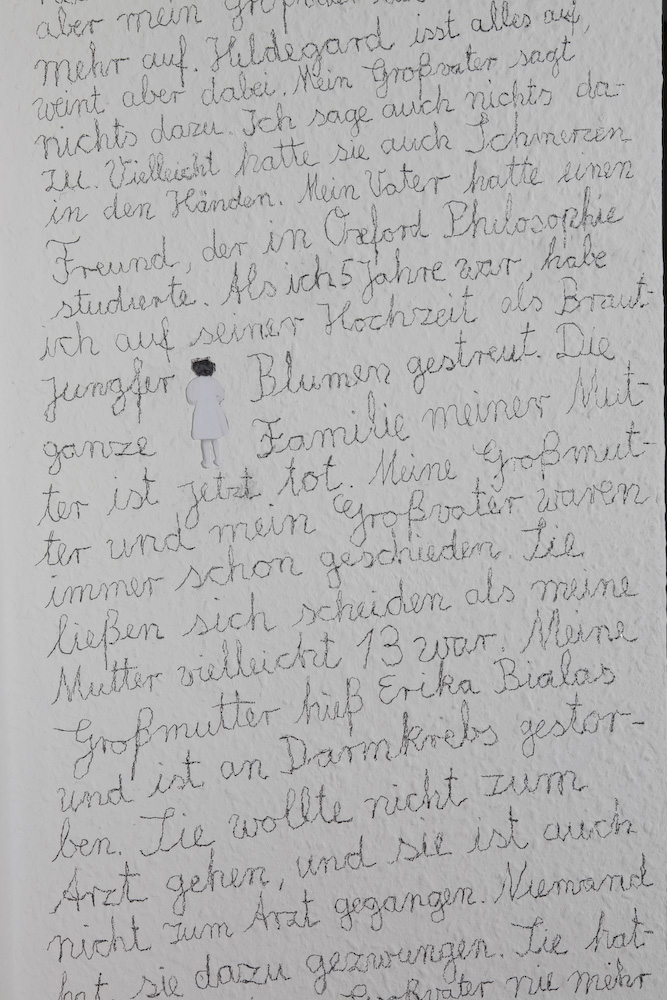 aber mein Großvater
mehr auf. Hildegard isst alles auf,
weint aber dabei. Mein Großvater sagt
nichts dazu. Ich sage auch nichts da-
zu. Vielleicht hatte sie auch Schmerzen
in den Händen. Mein Vater hatte einen
Freund, der in Oxford Philosophie
studierte. Als ich 5 Jahre war, habe
ich auf seiner Hochzeit als Braut-
jungfer Blumen gestreut. Die
ganze Familie meiner Mut-
ter ist jetzt tot. Meine Großmut-
ter und mein Großvater waren
immer schon geschieden. Sie
ließen sich scheiden als meine
Mutter vielleicht 13 war. Meine
Großmutter hieß Erika Bialas
und ist an Darmkrebs gestor-
ben. Sie wollte nicht zum
Arzt gehen, und sie ist auch
nicht zum Arzt gegangen. Niemand
hat sie dazu gezwungen. Sie hat-
Großvater nie mehr